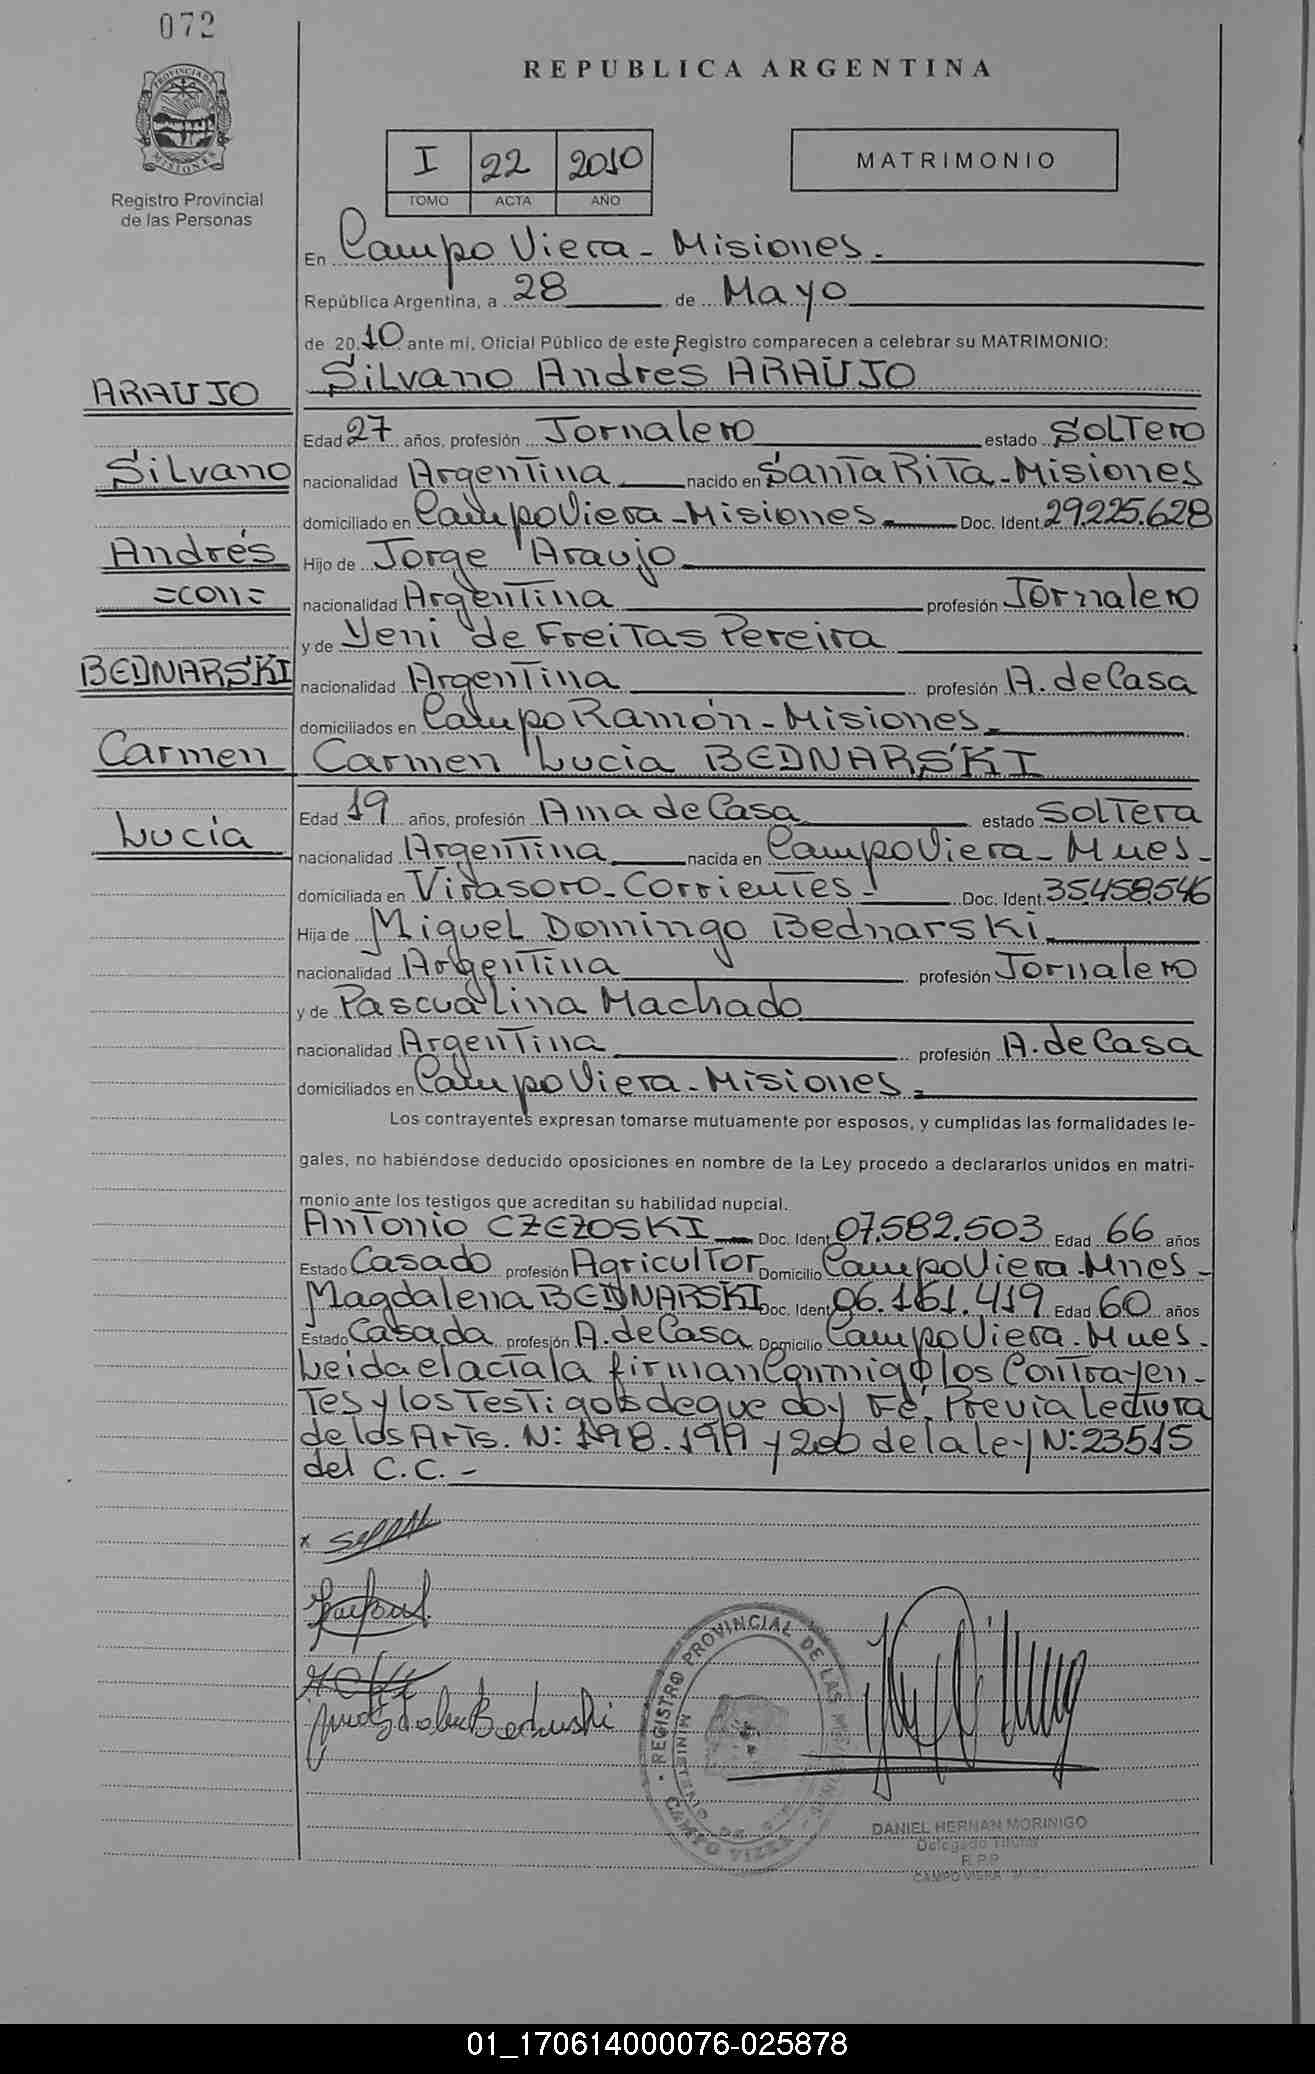 072
PROVINCIA DE
MISIONES
Registro Provincial
de las Personas
REPUBLICA ARGENTINA
I 22 2010
TOMO ACTA AÑO
MATRIMONIO
En Campo Viera - Misiones.
República Argentina, a 28 de Mayo
de 2010 ante mí, Oficial Público de este Registro comparecen a celebrar su MATRIMONIO:
ARAUJO
Silvano Andrés ARAUJO
Edad 27 años, profesión Jornalero estado Soltero
Silvano
nacionalidad Argentina nacido en Santa Rita - Misiones
domiciliado en Campo Viera - Misiones Doc. Ident. 29.225.628
Andrés
Hijo de Jorge Araujo
=con=
nacionalidad Argentina profesión Jornalero
y de Yeni de Freitas Pereira
BEDNARSKI
nacionalidad Argentina profesión A. de Casa
domiciliados en Campo Ramón - Misiones
Carmen
Carmen Lucia BEDNARSKI
Edad 19 años, profesión Ama de Casa estado Soltera
Lucia
nacionalidad Argentina nacida en Campo Viera - Mnes -
domiciliada en Virasoro - Corrientes - Doc. Ident. 35.458.546
Hija de Miguel Domingo Bednarski
nacionalidad Argentina profesión Jornalero
y de Pascualina Machado
nacionalidad Argentina profesión A. de Casa
domiciliados en Campo Viera - Misiones
Los contrayentes expresan tomarse mutuamente por esposos, y cumplidas las formalidades le-
gales, no habiéndose deducido oposiciones en nombre de la Ley procedo a declararlos unidos en matri-
monio ante los testigos que acreditan su habilidad nupcial.
Antonio CZEZOSKI Doc. Ident. 07.582.503 Edad 66 años
Estado Casado profesión Agricultor Domicilio Campo Viera - Mnes -
Magdalena BEDNARSKI Doc. Ident. 06.161.419 Edad 60 años
Estado Casada profesión A. de Casa Domicilio Campo Viera - Mnes -
Leida el acta la firman Conmigo los Contrayen-
tes y los Testigos de que doy Fé. Previa Lectura
de los Arts. N: 198. 199 y 200 de la ley N: 23515
del C.C. -
Magdalena Bednarski
REGISTRO PROVINCIAL DE LAS
CAMPO VIERA
DANIEL HERNAN MORINIGO
Delegado Titular
R.P.P.
CAMPO VIERA
01_170614000076-025878